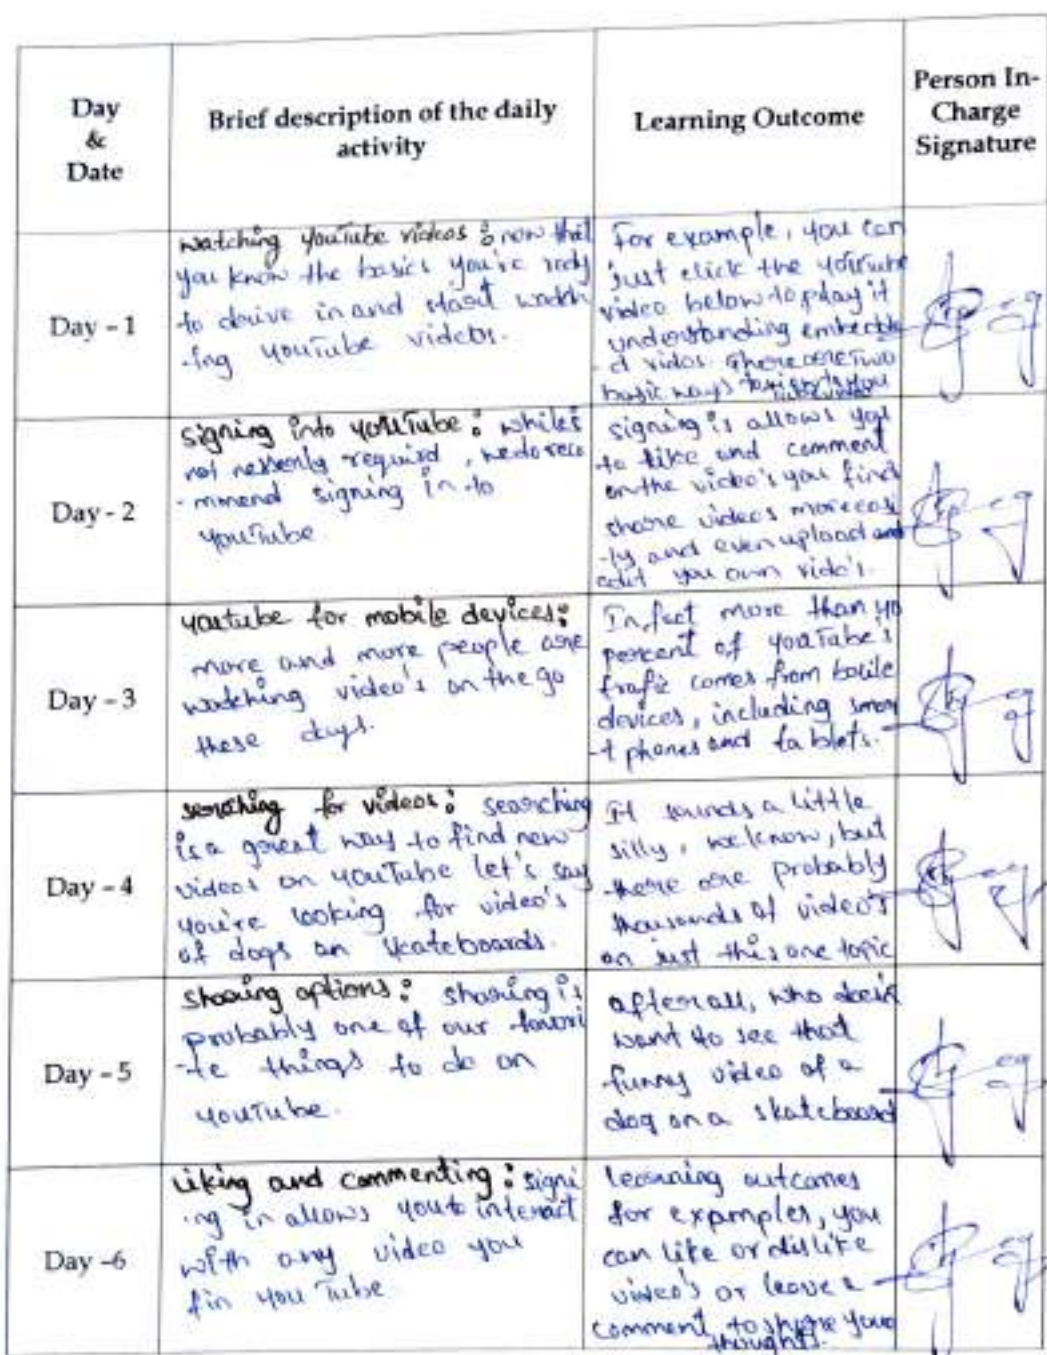 Day
&
Date
Brief description of the daily
activity
Learning Outcome
Person In-
Charge
Signature
Day - 1
watching YouTube videos : now that
you know the basics you're redy
to drive in and start watch
-ing YouTube videos.
For example, you can
just click the YouTube
video below to play it
understanding embedde
-d vidos There are two
basic ways to
Day - 2
signing into YouTube : while's
not requird, we do reco
-mmend signing in to
YouTube.
signing is allows you
to like and comment
on the video's you find
share videos more eas
-ly and even upload and
edit you own vido's.
Day - 3
youtube for mobile devices :
more and more people are
watching video's on the go
these days.
In fact more than 40
percent of YouTube's
trafic comes from
devices, including smar
-t phones and tablets.
Day - 4
searching for videos : searching
is a great way to find new
videos on YouTube let's say
you're looking for video's
of dogs on skateboards.
It sounds a little
silly, we know, but
there are probably
thousands of video's
on just this one topic
Day - 5
sharing options : sharing is
probably one of our favori
-te things to do on
YouTube.
after all, who
want to see that
funny video of a
dog on a skateboard
Day -6
Liking and commenting : signi
-ng in allows you to interact
with any video you
fin You Tube
learning outcomes
for examples, you
can like or dislike
video's or leave a
comment to share your
thoughts.